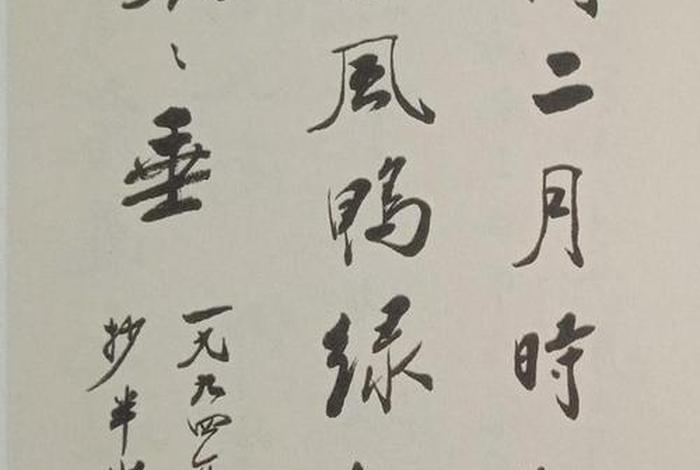 二月時
風鴨綠
〻垂
一九九四年
抄半